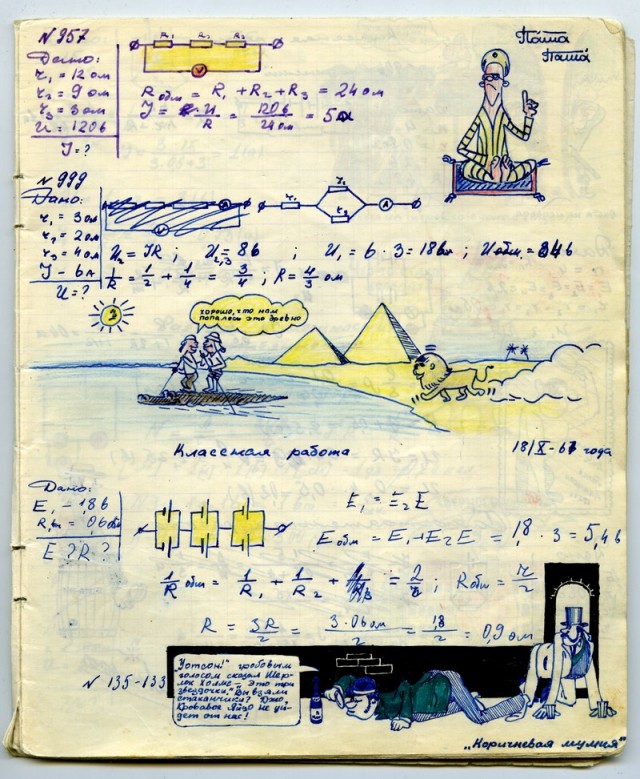 N 957
Дано:
r₁ = 12 ом
r₂ = 9 ом
r₃ = 3 ом
U = 120 в
J = ?
R₁ R₂ R₃
V
R общ = R₁ + R₂ + R₃ = 24 ом
J = U/R = 120 в/24 ом = 5 а
Паша
Паша
N 999
Дано:
r₁ = 3 ом
r₂ = 2 ом
r₃ = 4 ом
J - 6а
U = ?
A
r₁
r₂
r₃
A
U₂ = JR ; U₂,₃ = 8 в ; U₁ = 6 · 3 = 18 в ; U общ. =
1/R = 1/2 + 1/4 = 3/4 ; R = 4/3 ом
хорошо, что нам
попалось это бревно
Классная работа
18/X-67 года
Дано:
E₁ - 1,8 в
R₁вн = 0,6 ом
E ? R ?
E₁ = E₂ E
E общ = E₁ + E₂ E = 1,8 · 3 = 5,4 в
1/R общ = 1/R₁ + 1/R₂ + = 2/R ; R общ = r/2
R = 3R/2 = 3 · 0,6 ом/2 = 1,8/2 = 0,9 ом
N 135-133
"Уотсон!" гробовым
голосом сказал Шер-
лок Холмс - Это три
звездочки." Вы взяли
стаканчики?
Кровавое Яйцо не уй-
дет от нас!
"Коричневая мумия"